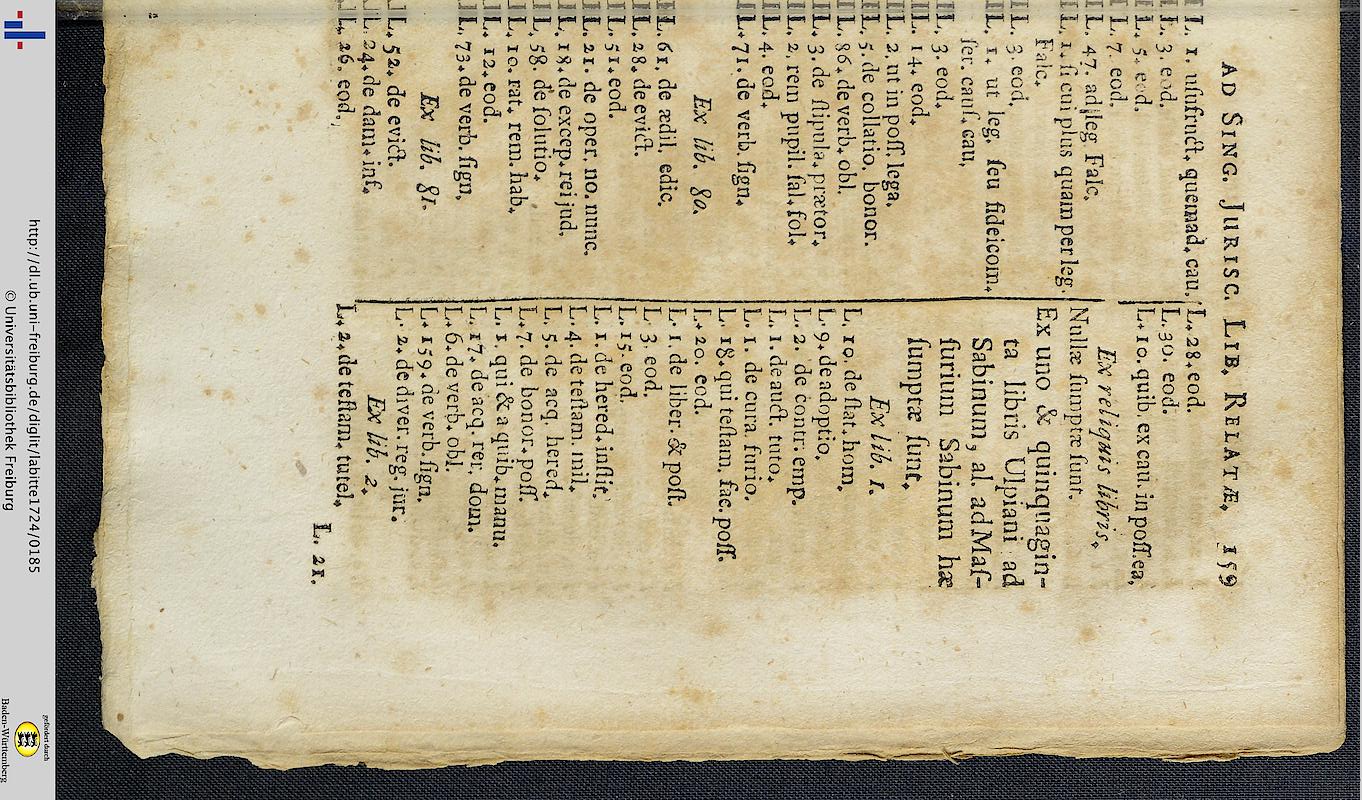 AD SING. JURISC. LIB. RELATÆ. 159
L. 1. uſufruct. quemad. cau.
L. 3. eod.
L. 5. eod.
L. 7. eod.
L. 47. ad leg Falc.
L. 1. ſi cui plus quam per leg
Falc.
L. 3. eod.
L. 1. ut leg. ſeu fideicom.
ſer. cauſ. cau.
L. 3. eod.
L. 14. eod.
L. 2. ut in poſſ. lega.
L. 5. de collatio. bonor.
L. 86. de verb. obl.
L. 3. de ſtipula. prætor.
L. 2. rem pupil. ſal. fol.
L. 4. eod.
L. 71. de verb. ſign.
Ex lib. 80.
L. 61. de ædil. edic.
L. 28. de evict.
L. 51. eod.
L. 21. de oper. no. nunc.
L. 18. de excep. rei jud.
L. 58. de ſolutio.
L. 10. rat. rem. hab.
L. 12. eod.
L. 73. de verb. ſign.
Ex lib. 81.
L. 52. de evict.
L. 24. de dam. inf.
L. 26. eod.
L. 28. eod.
L. 30. eod.
L. 10. quib. ex cau. in poſſ. ea.
Ex reliquis libris.
Nullæ ſumptæ ſunt.
Ex uno & quinquagin-
ta libris Ulpiani ad
Sabinum, al. ad Maſ-
ſurium Sabinum hæ
ſumptæ ſunt.
Ex lib. 1.
L. 10. de ſtat. hom.
L. 9. de adoptio.
L. 2. de contr. emp.
L. 1. de auct. tuto.
L. 1. de cura. furio.
L. 18. qui teſtam. fac. poſſ.
L. 20. eod.
L. 1. de liber. & poſt.
L. 3. eod.
L. 15. eod.
L. 1. de hered. inſtit.
L. 4. de teſtam. mil.
L. 5. de acq. hered.
L. 7. de bonor. poſſ
L. 1. qui & a quib. manu.
L. 17. de acq. rer. dom.
L. 6. de verb. obl.
L. 159. de verb. ſign.
L. 2. de diver. reg. jur.
Ex lib. 2.
L. 2. de teſtam. tutel.
L. 21.
http://dl.ub.uni-freiburg.de/diglit/labitte1724/0185
© Universitätsbibliothek Freiburg
gefördert durch
Baden-Württemberg